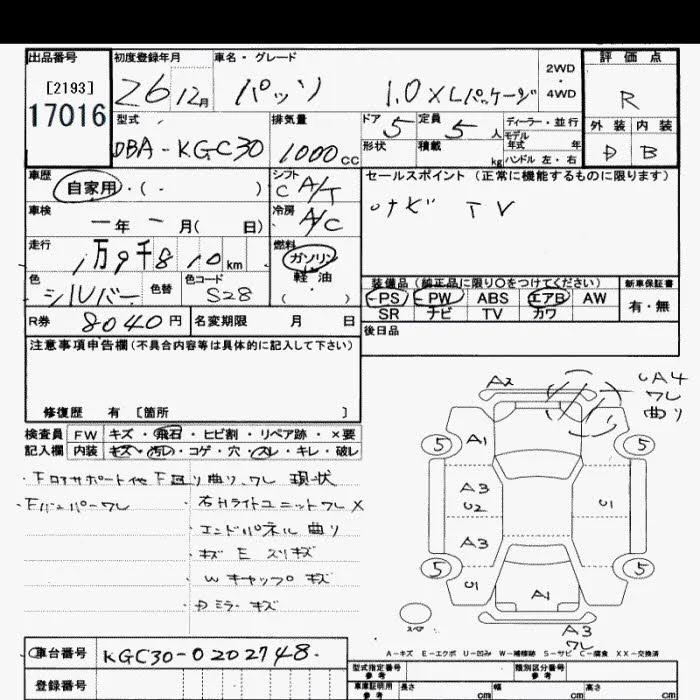 出品番号 初度登録年月 車名・グレード 評価点
[2193] 26年12月 パッソ 1.0 XLパッケージ 2WD・4WD R
17016
型式 排気量 ドア 定員 ディーラー・並行 外装 内装
DBA-KGC30 1000CC 5 5人 モデル年式 年 D B
形状 積載 kg ハンドル 左・右
車歴 シフト セールスポイント(正常に機能するものに限ります)
自家用・(・ ) C A/T ナビ TV
車検 冷房
ー年ー月( 日) A/C
走行 燃料
1万9千810km ガソリン
軽油
( )
色 色替 色コード
シルバー S28
装備品(純正品に限り〇をつけてください) 新車保証書
PS PW ABS エアB AW 有・無
SR ナビ TV カワ
R券 8040円 名変期限 月 日 後日品
注意事項申告欄(不具合内容等は具体的に記入して下さい)
修復歴 有 [箇所 ]
検査員 FW キズ・飛石・ヒビ割・リペア跡・×要
記入欄 内装 キズ・汚レ・コゲ・穴・スレ・キレ・破レ
・Fロアサポート他 F廻り曲り ワレ 現状
・Fバンパーワレ ・右Hライトユニットワレ X
・エンドパネル 曲り
・キズ E スリキズ
・Wキャップ キズ
・Dミラー キズ
A2
UA4
ワレ
曲り
5 A1 5
A3
U2 U1
A3
5 5
U1 A1
スペア
A3
ワレ
A-キズ E-エクボ U-凹み W-補修跡 S-サビ C-腐食 XX-交換済
車台番号 KGC30-0202748
登録番号
型式指定番号 参考 類別区分番号 参考
車庫証明用 参考 長さ cm 幅 cm 高さ cm